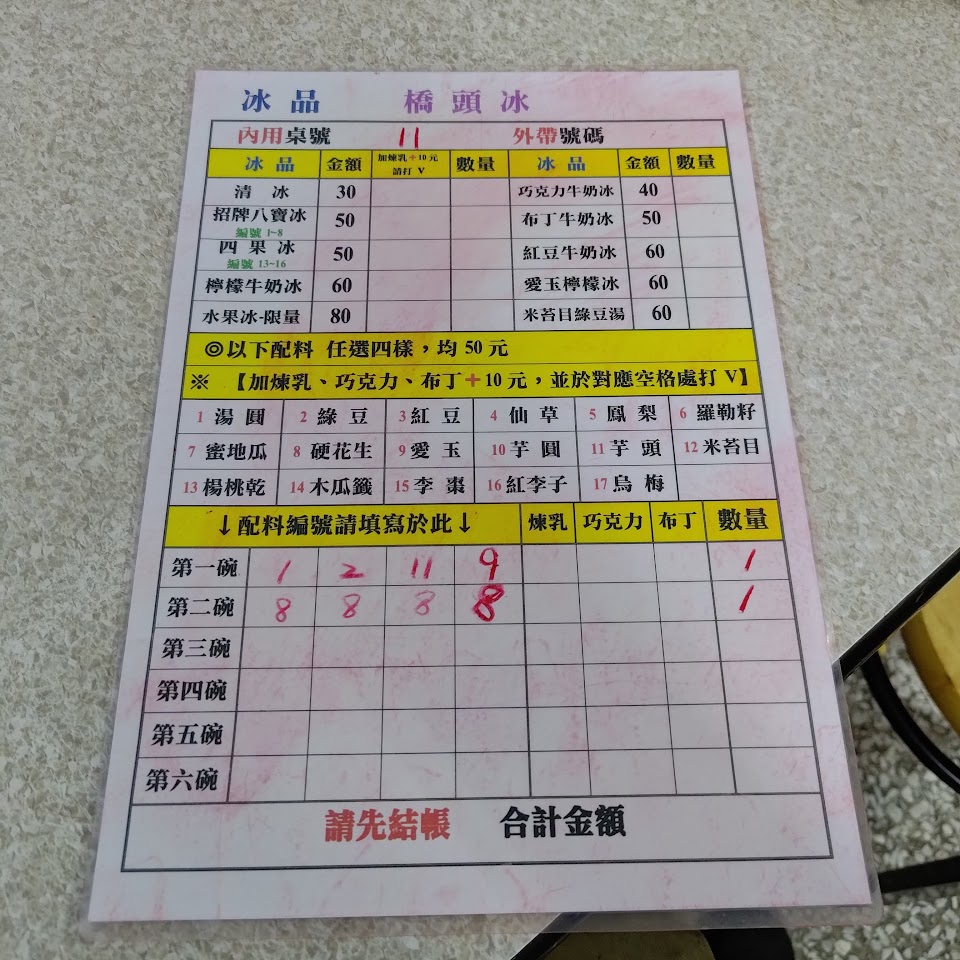 冰品 橋頭冰
內用桌號 11 外帶號碼
冰品 金額 加煉乳+10元 請打 V 數量 冰品 金額 數量
清冰 30 巧克力牛奶冰 40
招牌八寶冰 編號 1~8 50 布丁牛奶冰 50
四果冰 編號 13~16 50 紅豆牛奶冰 60
檸檬牛奶冰 60 愛玉檸檬冰 60
水果冰-限量 80 米苔目綠豆湯 60
◎以下配料 任選四樣，均 50 元
※ 【加煉乳、巧克力、布丁+10 元，並於對應空格處打 V】
1 湯圓 2 綠豆 3 紅豆 4 仙草 5 鳳梨 6 羅勒籽
7 蜜地瓜 8 硬花生 9 愛玉 10 芋圓 11 芋頭 12 米苔目
13 楊桃乾 14 木瓜籤 15 李棗 16 紅李子 17 烏梅
↓配料編號請填寫於此↓ 煉乳 巧克力 布丁 數量
第一碗 1 2 11 9 1
第二碗 8 8 8 8 1
第三碗
第四碗
第五碗
第六碗
請先結帳 合計金額